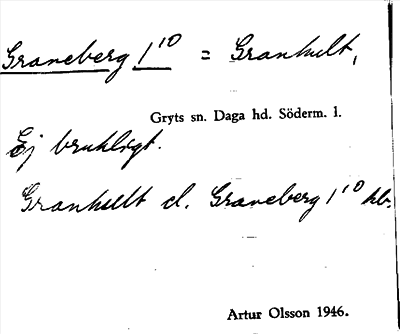 Graneberg 1¹⁰ = Granhult,
Gryts sn. Daga hd. Söderm. l.
Ej brukligt.
Granhult el. Graneberg 1¹⁰ hb.
Artur Olsson 1946.